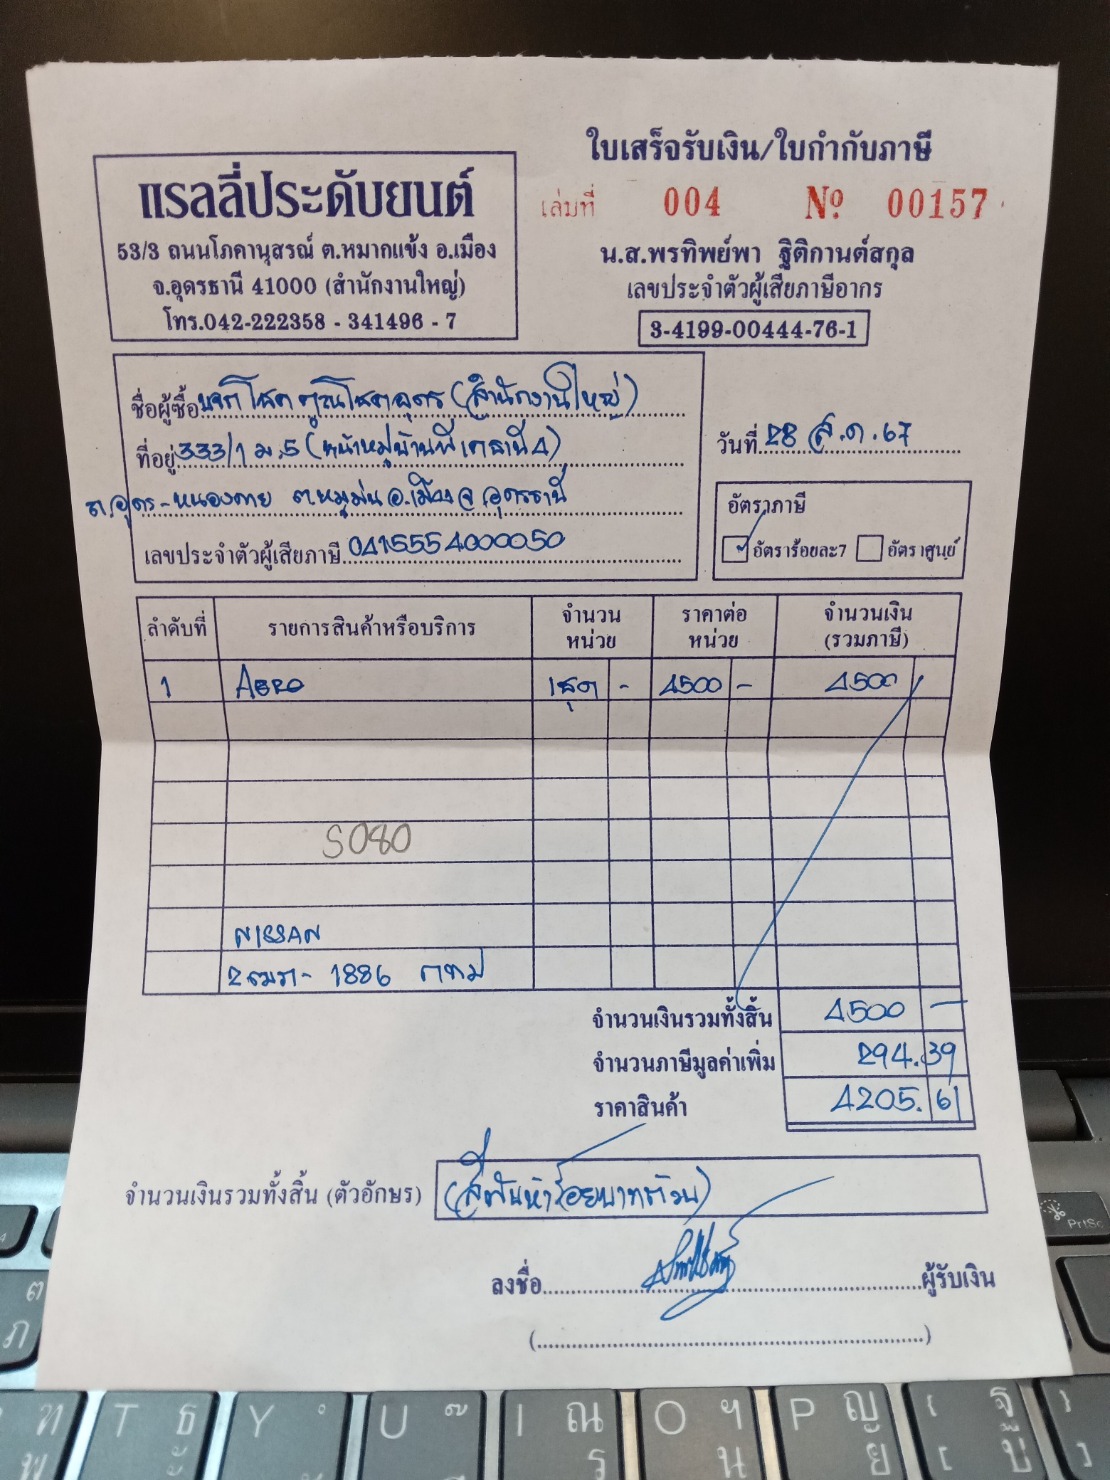 ใบเสร็จรับเงิน/ใบกำกับภาษี
แรลลี่ประดับยนต์
53/3 ถนนโภคานุสรณ์ ต.หมากแข้ง อ.เมือง
จ.อุดรธานี 41000 (สำนักงานใหญ่)
โทร.042-222358 - 341496 - 7
เล่มที่ 004 № 00157
น.ส.พรทิพย์พา ฐิติกานต์สกุล
เลขประจำตัวผู้เสียภาษีอากร
3-4199-00444-76-1
ชื่อผู้ซื้อ บจก โชค คูณโชคอุดร (สำนักงานใหญ่)
ที่อยู่ 333/1 ม.5 (หน้าหมู่บ้านพี เค ธานี 4)
ถ.อุดร-หนองคาย ต.หมูม่น อ.เมือง จ.อุดรธานี
เลขประจำตัวผู้เสียภาษี 0415554000050
วันที่ 28 ส.ค.67
อัตราภาษี
อัตราร้อยละ7 อัตราศูนย์
ลำดับที่ รายการสินค้าหรือบริการ จำนวนหน่วย ราคาต่อหน่วย จำนวนเงิน (รวมภาษี)
1 AERO 1ชุด - 4500 - 4500
S080
NISSAN
1886 กทม
จำนวนเงินรวมทั้งสิ้น 4500 -
จำนวนภาษีมูลค่าเพิ่ม 294.39
ราคาสินค้า 4205.61
จำนวนเงินรวมทั้งสิ้น (ตัวอักษร) (สี่พันห้าร้อยบาทถ้วน)
ลงชื่อ ผู้รับเงิน
PrtSc
ต
ภ
ท
พ
T ธ
Y
U
I ณ
ร
O ฯ
น
P ญ
ย
[ ฐ
บ